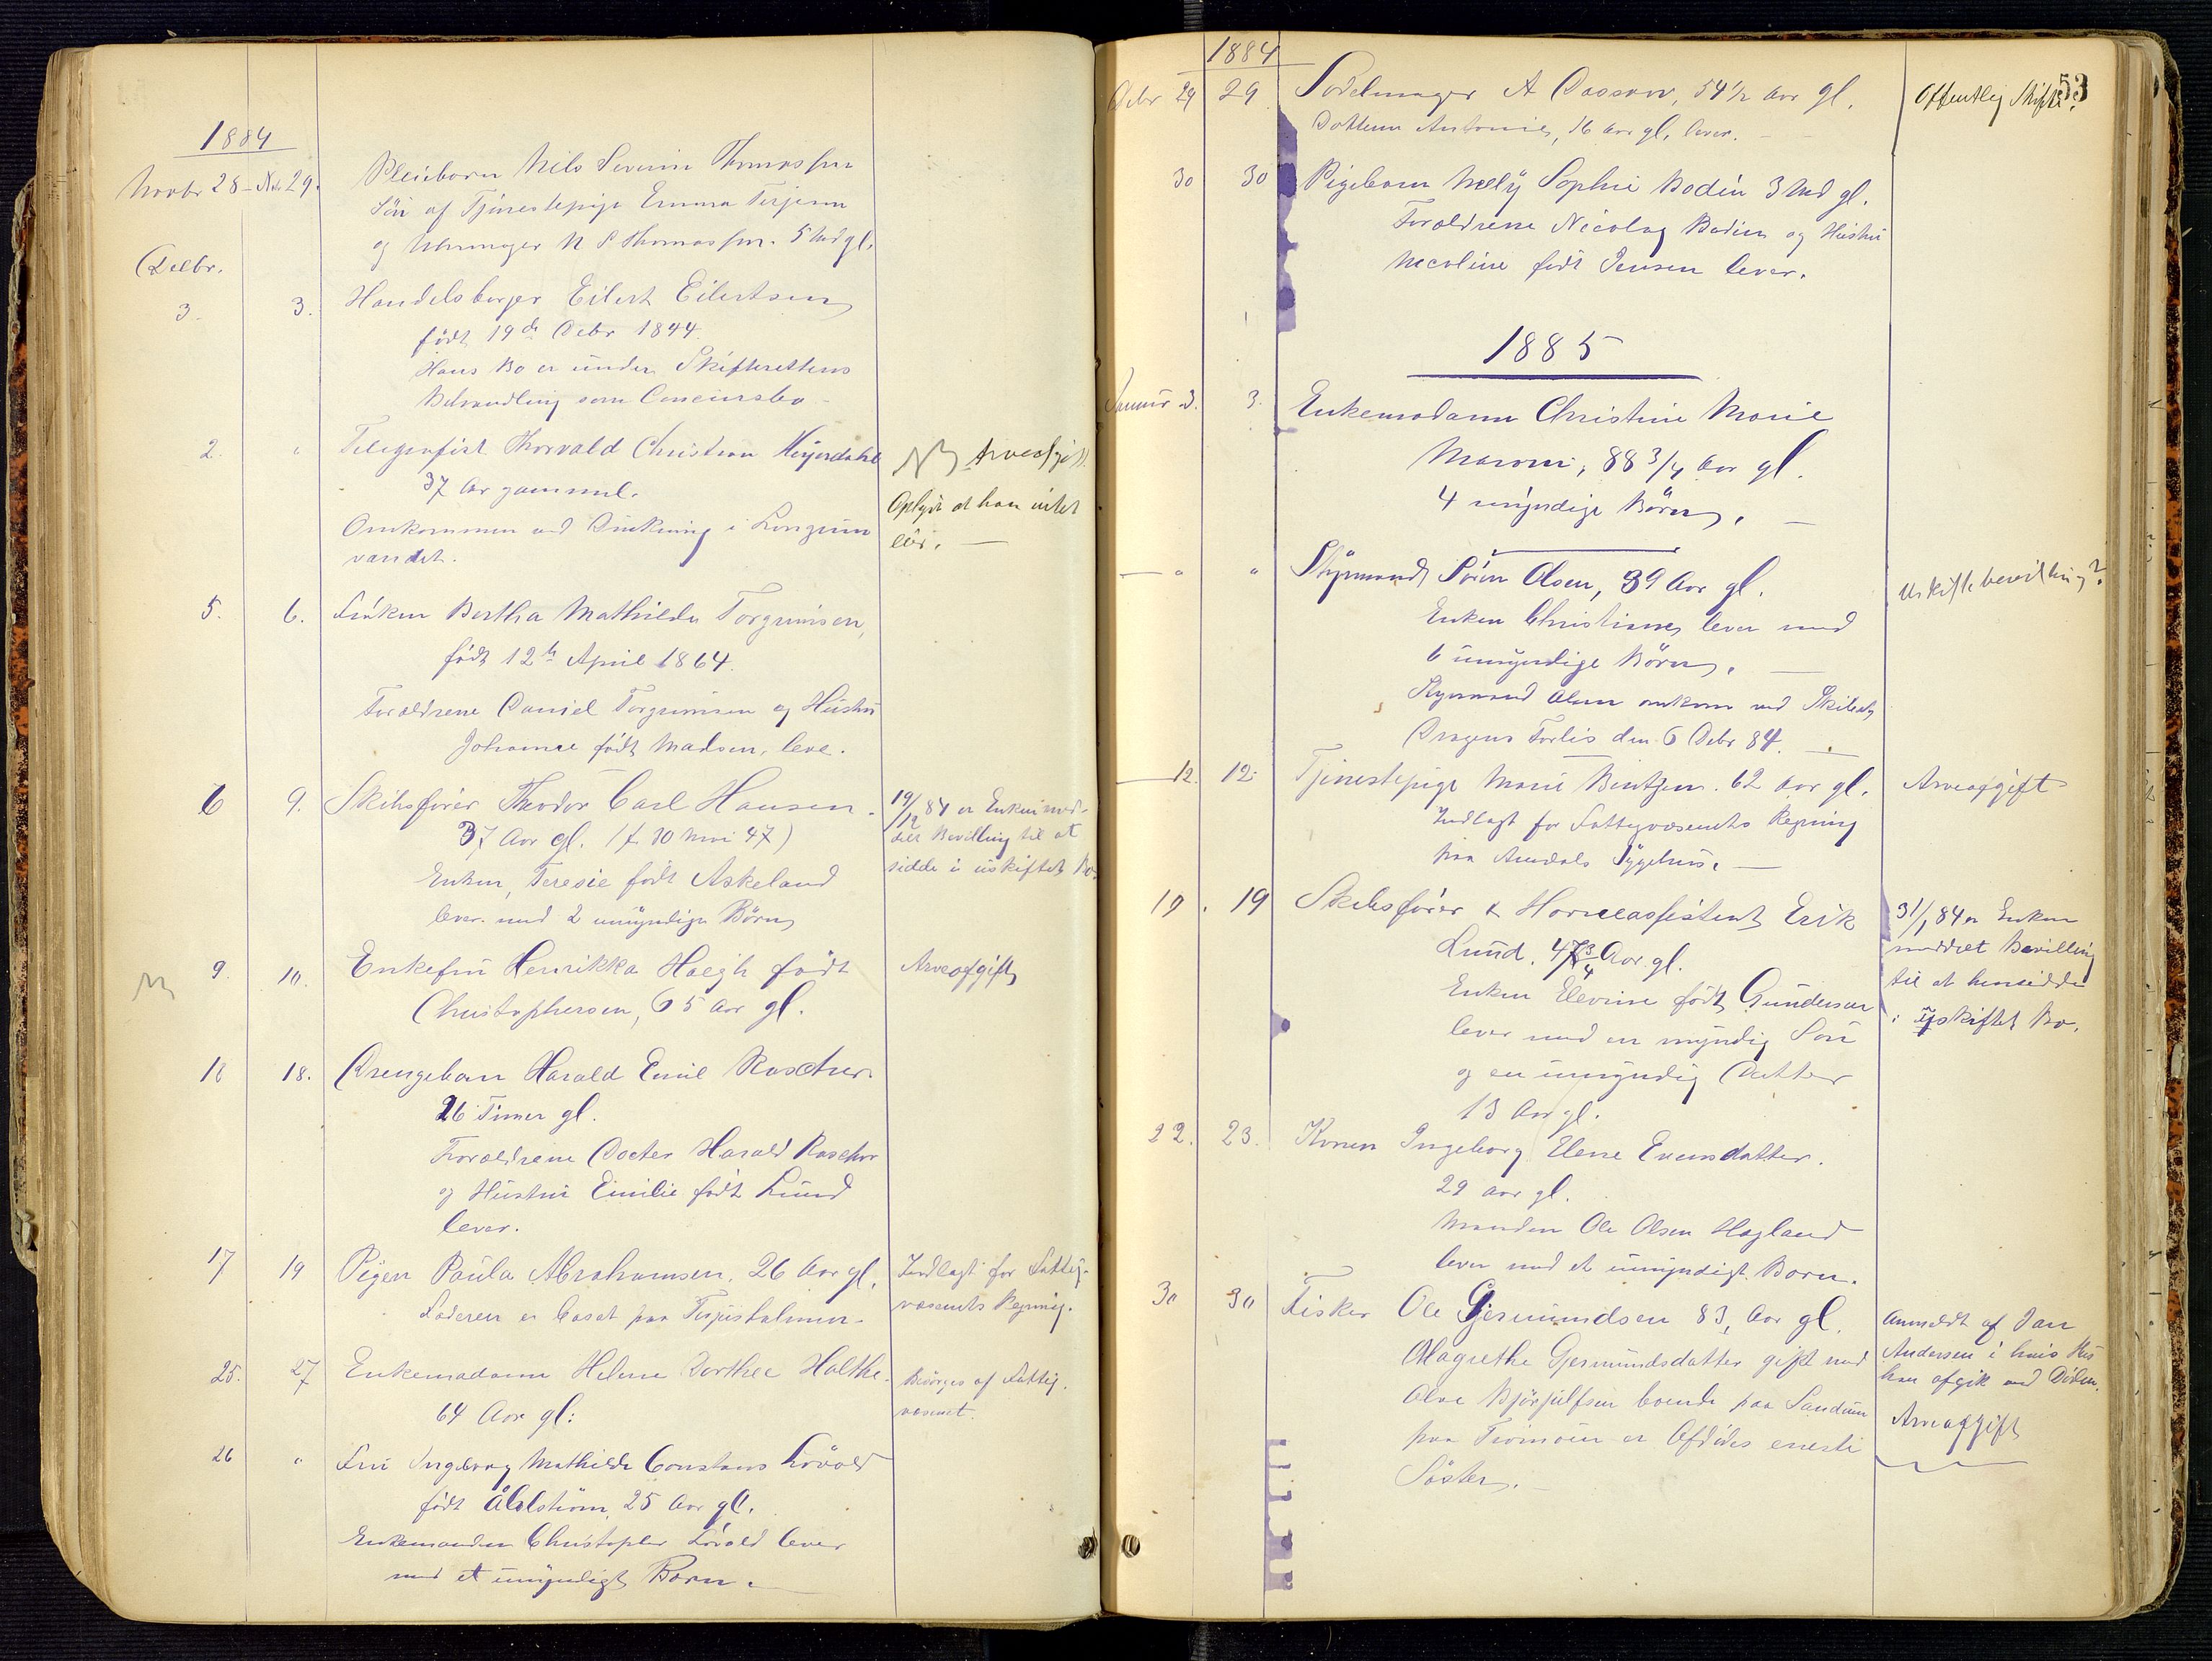 1884
Novbr 28 – Nv. 29. Pleiebarn Nils Severin Thomassen
Sön af Tjenestepige Emma Terjesen
og Uhrmager N P Thomassen. 5 Md gl.
Decbr.
3. 3. Handelsborger Eilert Eilertsen
født 19de Debr 1844.
Hans Bo er under Skifterettens
Behandling som Concursbo –
2. " Telegrafist Thorvald Christian Heyerdahl
37 Aar gammel.
Omkommen ved Drukning i Longum
vandet.
NB Arveafgift
Oplyst at han intet
eier. —
5. 6. Frøken Bertha Mathilde Torgrimsen,
født 12te April 1864.
Forældrene Daniel Torgrimsen og Hustru
Johanne født Madsen, leve.
6 9. Skibsfører Theodor Carl Hansen.
37 Aar gl. (f. 10 Mai 47)
Enken, Teresie født Askeland
lever med 2 umyndige Børn
19/12 84 er Enken med-
delt Bevilling til at
sidde i uskiftet Bo.
9. 10. Enkefru Henrikka Høegh født
Christophersen, 65 Aar gl.
Arveafgift
18 18. Drengebarn Harald Emil Roscher.
26 Timer gl.
Forældrene Docter Harald Roscher
og Hustru Emilie født Lund
lever.
17 19 Pigen Paula Abrahamsen, 26 Aar gl.
Faderen er bosat paa Terjusholmen.
Indlagt for Fattig-
væsenets Regning.
25. 27 Enkemadame Helene Dorthee Holthe.
64 Aar gl:
Besörges af Fattig.
væsenet.
26 " Fru Ingeborg Mathilde Constans Lövold
født Åhlström, 25 Aar gl.
Enkemanden Christopher Lövold lever
med et umyndigt Barn.
53
1884
Debr 29 29 A Dassow, 54 1/2 Aar gl.
Datteren Antonie, 16 Aar gl, lever.
Offentlig Skifte.
30 30 Pigebarn Nelly Sophie Bodin 3 Md gl.
Forældrene Nicolay Bodin og Hustru
Nicoline født Jensen lever.
1885
Januar 3. 3. Enkemadame Christine Marie
Maroni, 88 3/4 Aar gl.
4 myndige Børn.
— " " Styrmand Sören Olsen, 39 Aar gl.
Enken Christiane lever med
6 umyndige Børn.
Styrmand Olsen omkom ved Skibet
Dragens Forlis den 6 Debr 84.
Uskiftebevilling?
12. 12. Tjenestepige Marie Bentzen. 62 Aar gl.
Indlagt for Fattigvæsenets Regning
paa Arendals Sygehus.
Arveafgift
19. 19 Skibsfører & Havneassistent Erik
Lund. 47 3/4 Aar gl.
Enken Elevine født Gundersen
lever med en myndig Sön
og en umyndig Datter
13 Aar gl.
31/1 84 er Enken
meddelt Bevilling
til at hensidde
i uskiftet Bo.
22. 23. Konen Ingeborg Elene Evensdatter.
29 aar gl.
Manden Ole Olsen Hagland
lever med et umyndigt Barn.
30 30 Fisker Ole Gjermundsen 83, Aar gl.
Magrethe Gjermundsdatter gift med
Bjørjulfsen boende paa Sandum
paa Tromöen er Afdödes eneste
Søster.
Anmeldt af Jan
Andersen i hvis Hus
han afgik ved Døden.
Arveafgift